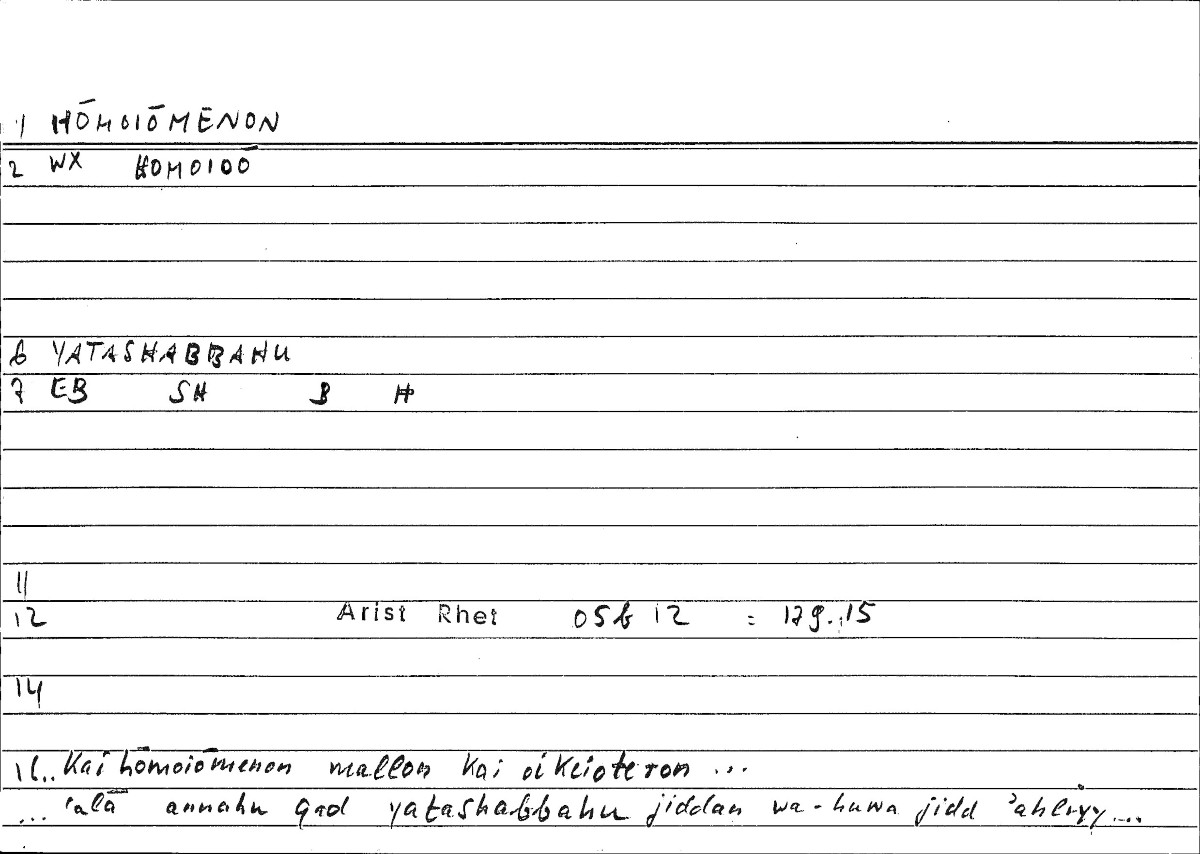 1 HŌMOIŌMENON
2 WX HOMOIOŌ
6 YATASHABBAHU
7 EB SH B H
11
12 Arist Rhet 05b 12 = 179.,15
14
16.. kai hōmoiōmenon mallon kai oikeioteron ...
... ʿalā annahu qad yatashabbahu jiddan wa-huwa jidd ʾahliyy ...